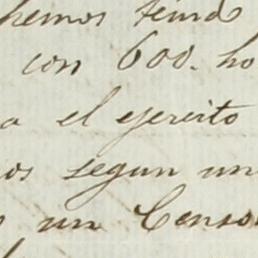 hemos tenido
con 600. ho
a el ejercito
os segun un
un Censo